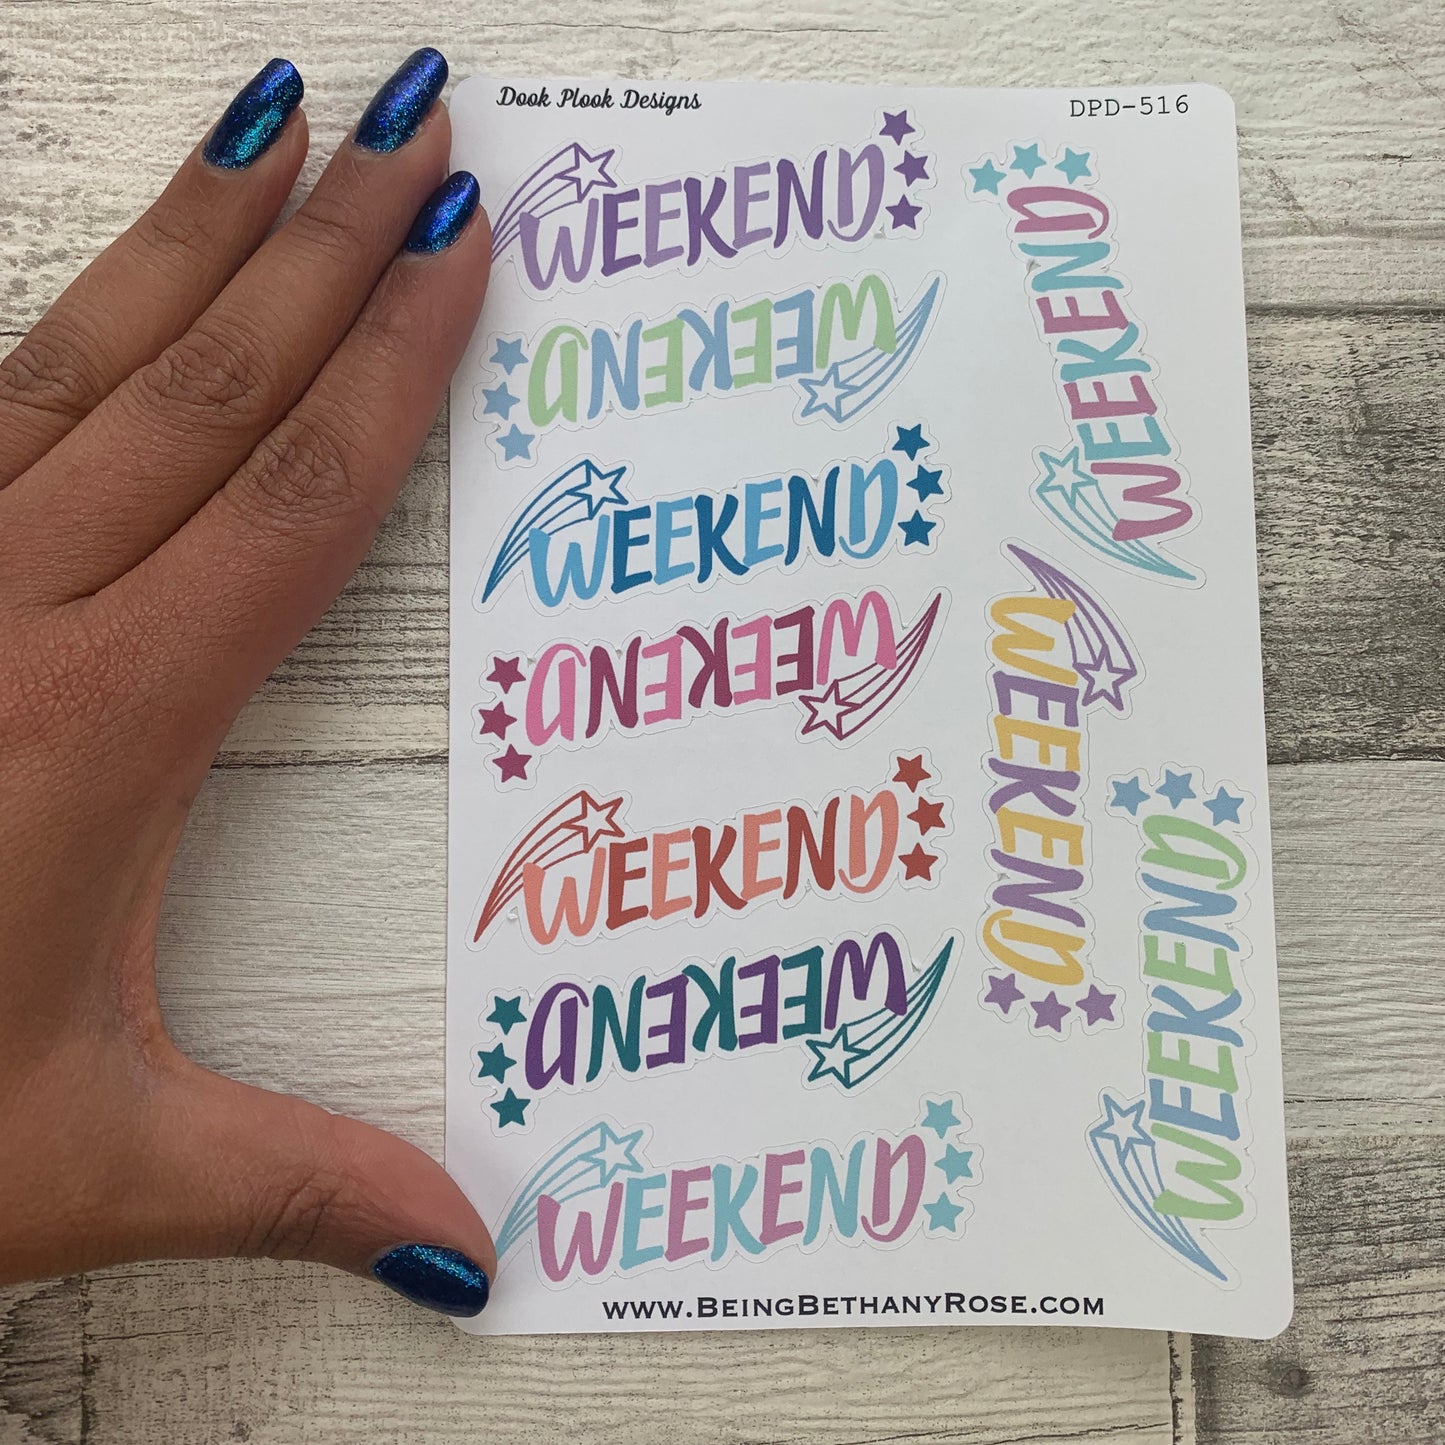 Dook Plook Designs
DPD-516
WEEKEND
WEEKEND
WEEKEND
WEEKEND
WEEKEND
WEEKEND
WEEKEND
WEEKEND
WEEKEND
WEEKEND
www.BeingBethanyRose.com